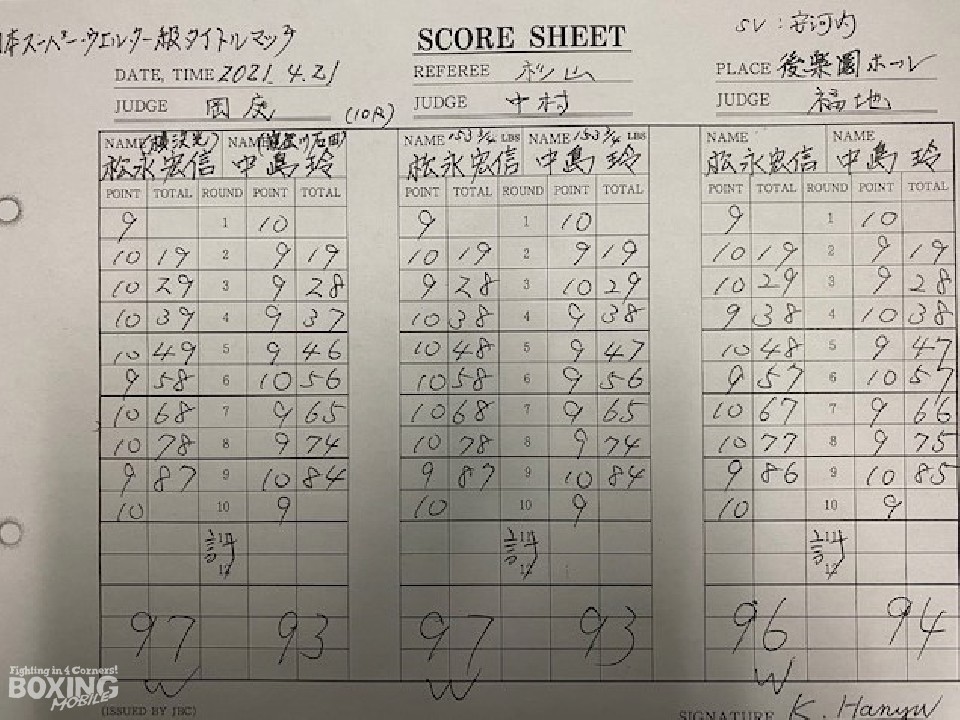 日本スーパー・ウエルター級タイトルマッチ
SCORE SHEET
SV：安河内
DATE, TIME 2021. 4. 21
REFEREE 杉山
PLACE 後楽園ホール
JUDGE 岡庭 (10R)
JUDGE 中村
JUDGE 福地
NAME NAME
松永宏信 中島 玲
POINT TOTAL ROUND POINT TOTAL
9 1 10
10 19 2 9 19
10 29 3 9 28
10 39 4 9 37
10 49 5 9 46
9 58 6 10 56
10 68 7 9 65
10 78 8 9 74
9 87 9 10 84
10 10 9
計
12
97 93
W
NAME 153 3/4 LBS NAME 153 3/4 LBS
松永宏信 中島 玲
POINT TOTAL ROUND POINT TOTAL
9 1 10
10 19 2 9 19
9 28 3 10 29
10 38 4 9 38
10 48 5 9 47
10 58 6 9 56
10 68 7 9 65
10 78 8 9 74
9 87 9 10 84
10 10 9
計
12
97 93
W
NAME NAME
松永宏信 中島 玲
POINT TOTAL ROUND POINT TOTAL
9 1 10
10 19 2 9 19
10 29 3 9 28
9 38 4 10 38
10 48 5 9 47
9 57 6 10 57
10 67 7 9 66
10 77 8 9 75
9 86 9 10 85
10 10 9
計
12
96 94
W
Fighting in 4 Corners!
BOXING
MOBILE
(ISSUED BY JBC)
SIGNATURE K. Hanyu